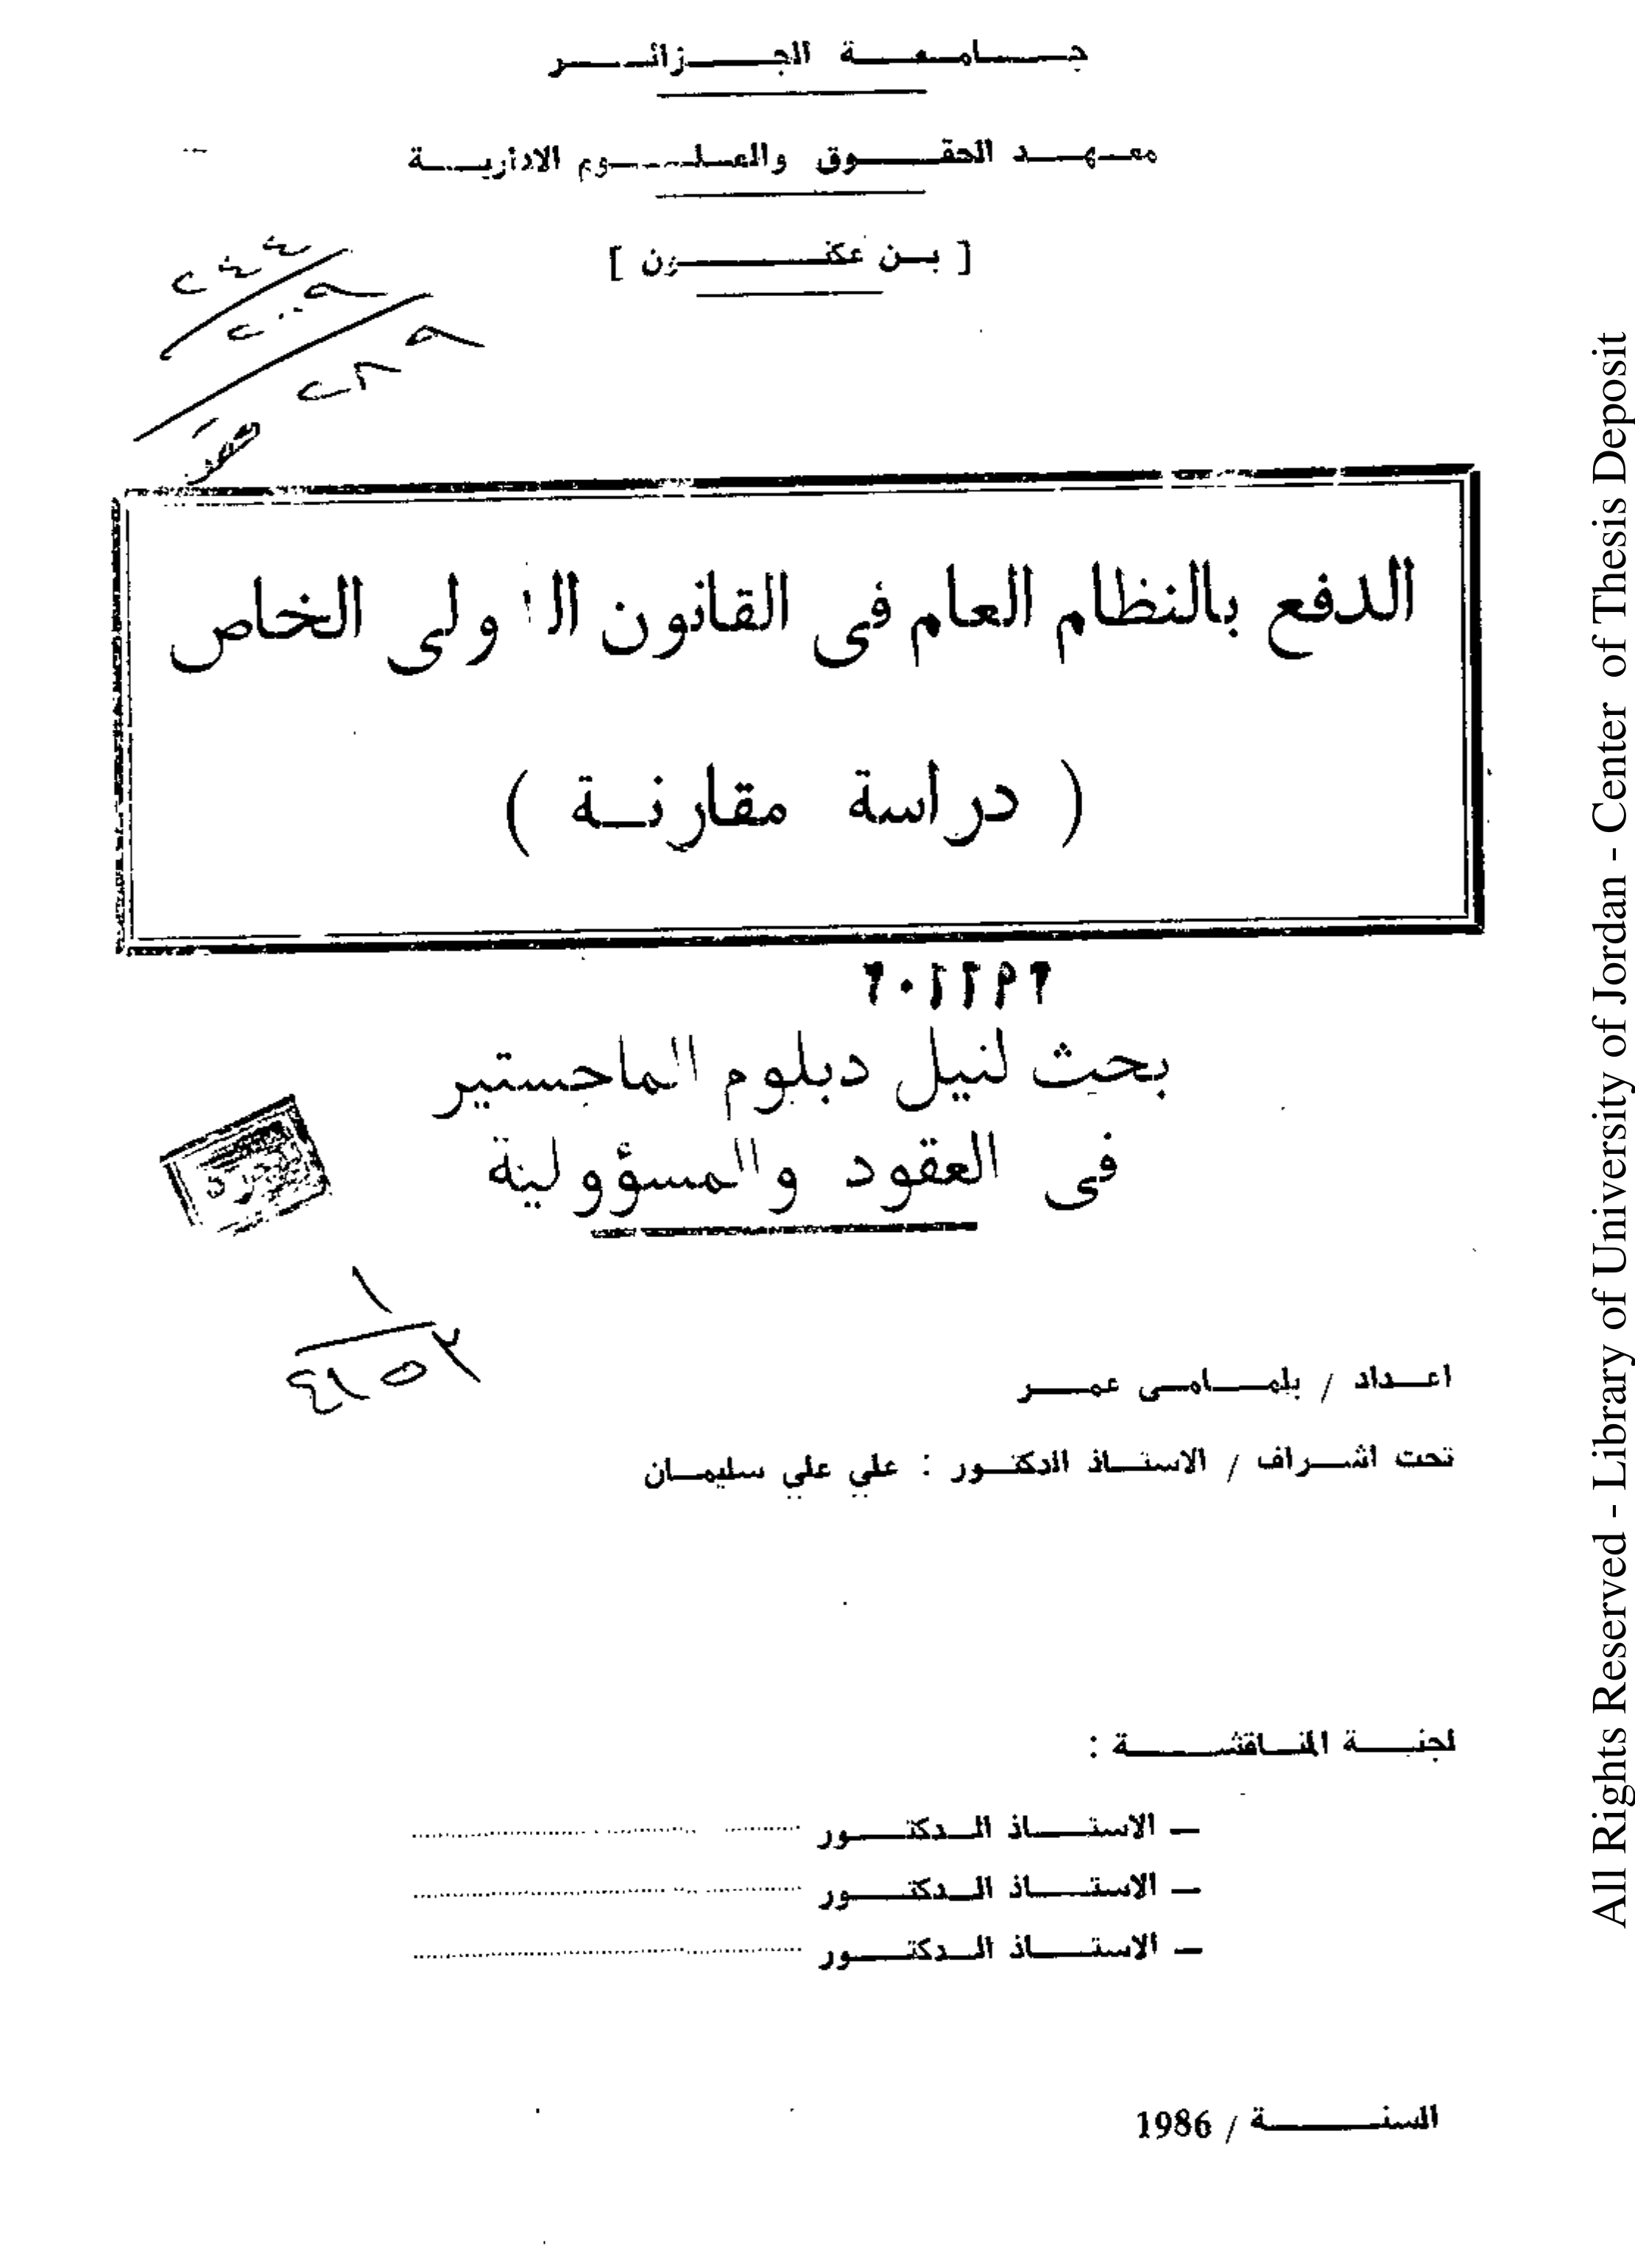 جامعة الجزائر
معهد الحقوق والعلوم الادارية
[ بن عكنون ]
الدفع بالنظام العام فى القانون الدولى الخاص
( دراسة مقارنة )
بحث لنيل دبلوم الماجستير
فى العقود والمسؤولية
اعداد / بلمامى عمر
تحت اشراف / الاستاذ الدكتور : علي علي سليمان
لجنة المناقشة :
– الاستاذ الدكتور ........................
– الاستاذ الدكتور ........................
– الاستاذ الدكتور ........................
السنة / 1986
All Rights Reserved - Library of University of Jordan - Center of Thesis Deposit